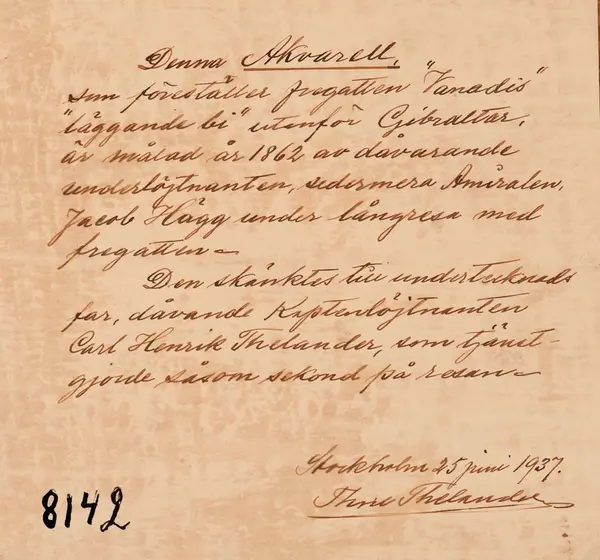 Denna Akvarell,
som föreställer fregatten "Vanadis"
"läggande bi" utanför Gibraltar,
är målad år 1862 av dåvarande
underlöjtnanten, sedermera Amiralen,
Jacob Hägg under långresa med
fregatten.
Den skänktes till undertecknads
far, dåvande Kaptenlöjtnanten
Carl Henrik Thelander, som tjänst-
gjorde såsom sekond på resan.
Stockholm 25 juni 1937.
Thelander
8142